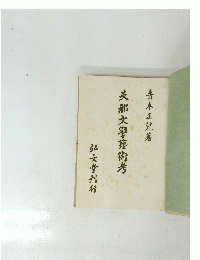 青木正児著
支那文學藝術考
弘文堂刊行